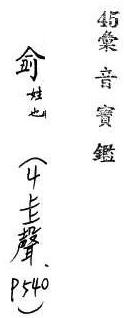 45彙音寶鑑
俞姓也（4聲P540）